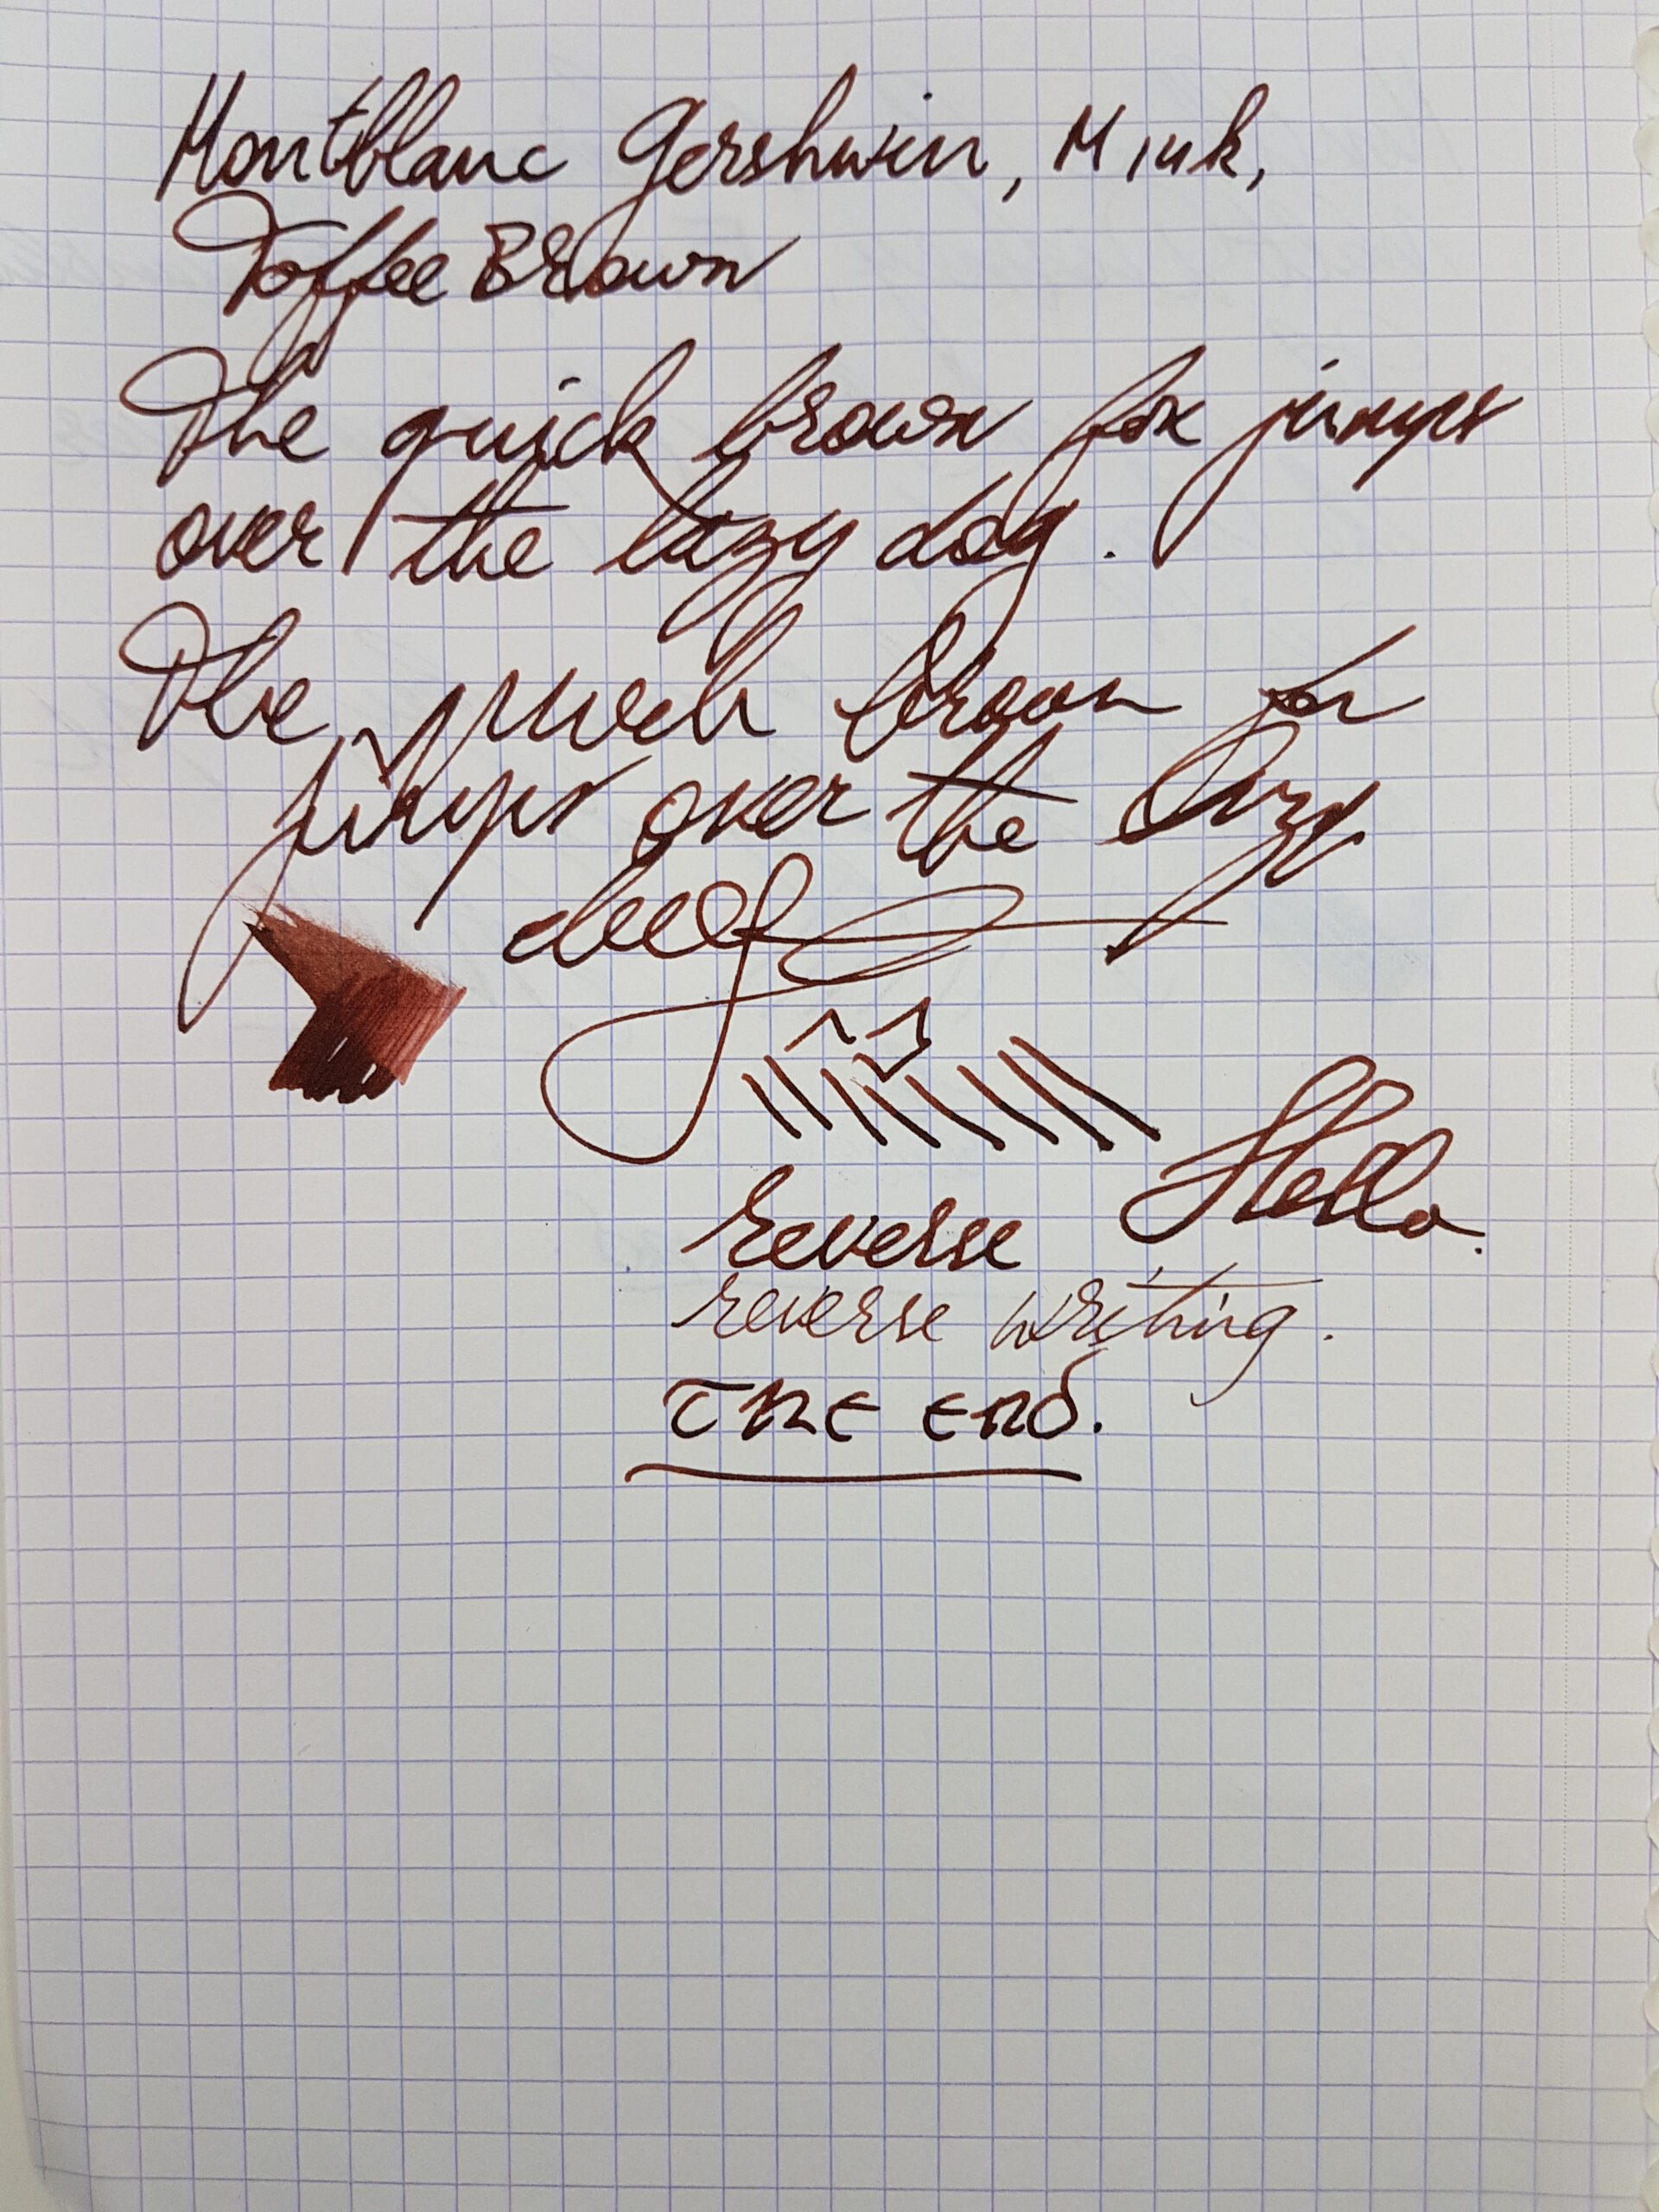 Montblanc Gershwin, M ink,
Toffee Brown
The quick brown fox jumps
over the lazy dog.
The quick brown fox
jumps over the lazy
dog
Hello.
reverse
reverse writing.
THE END.